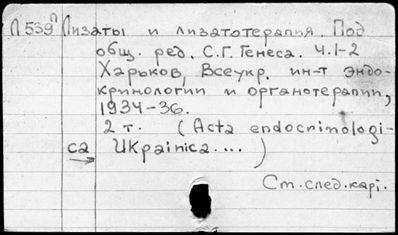 П 539 Лизаты и лизатотерапия. Под
общ. ред. С.Г. Генеса. Ч.1-2
Харьков, Всеукр. ин-т эндо-
кринологии и органотерапии,
1934-36.
2 т. (Acta endocrinologi-
ca Ukpainica....)
Ст.след.карт.